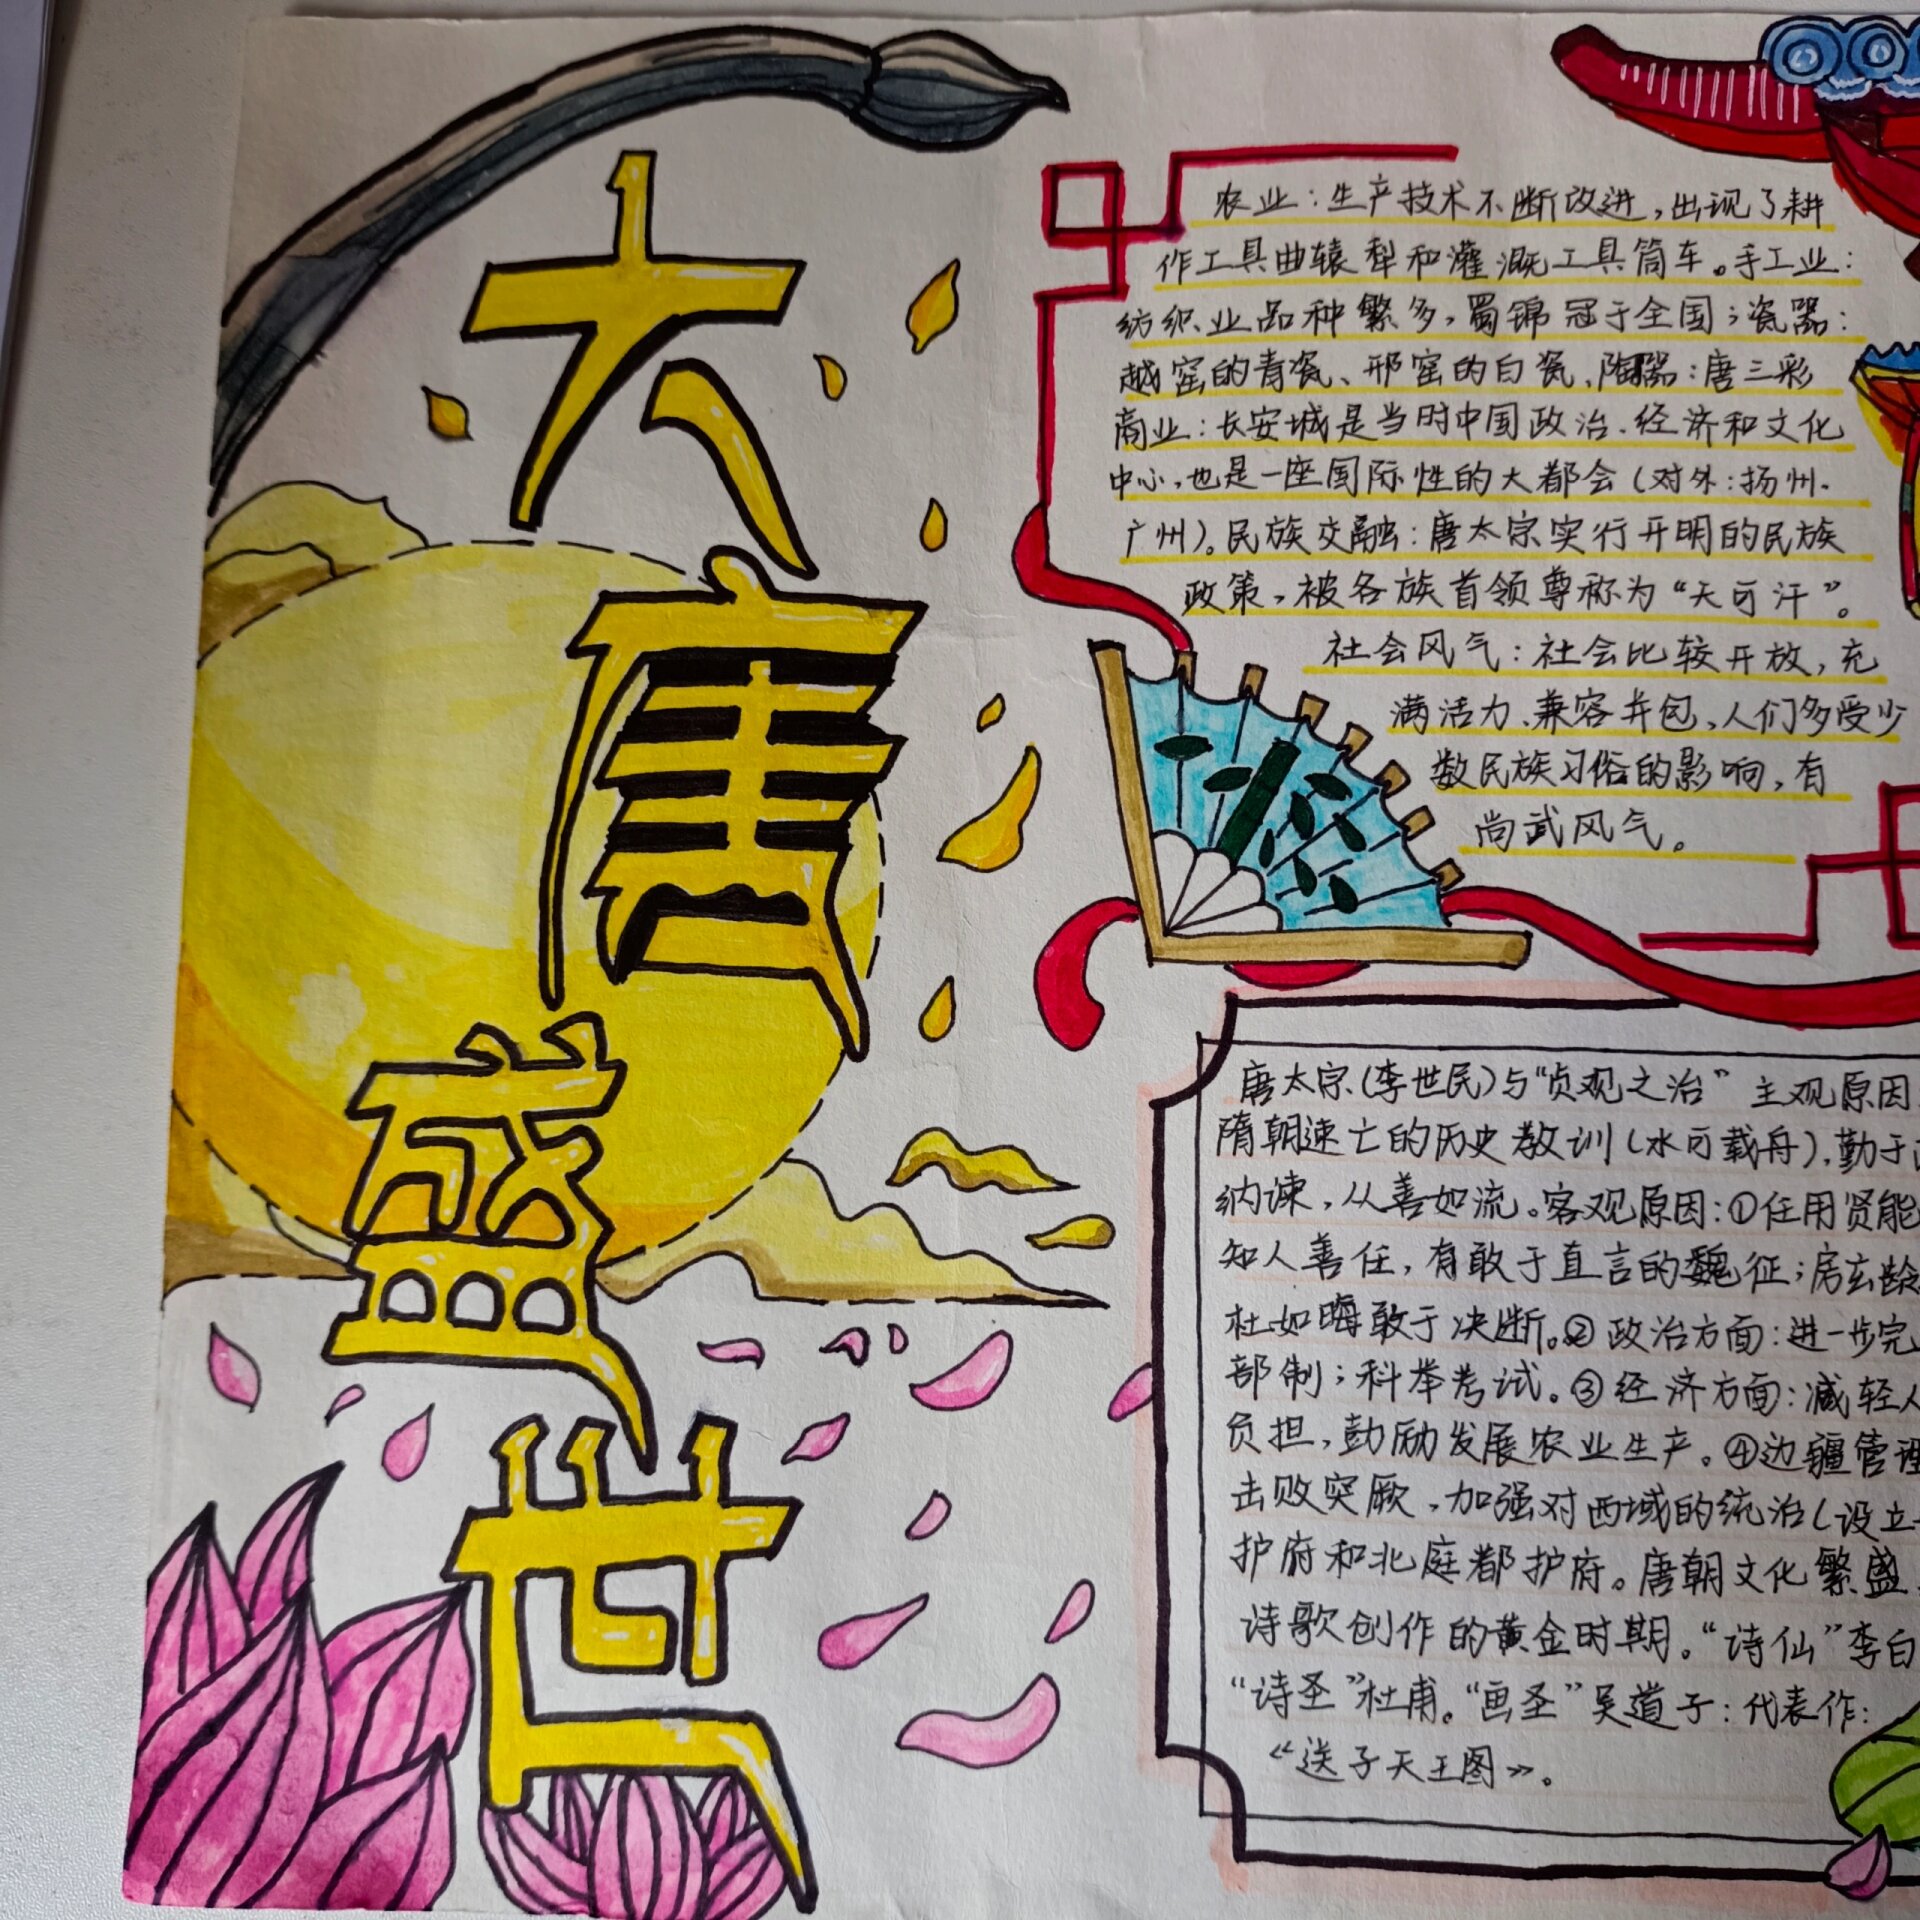 大唐盛世
农业：生产技术不断改进，出现了耕
作工具曲辕犁和灌溉工具筒车。手工业：
纺织业品种繁多，蜀锦冠于全国；瓷器：
越窑的青瓷、邢窑的白瓷、陶器：唐三彩
商业：长安城是当时中国政治、经济和文化
中心，也是一座国际性的大都会（对外：扬州、
广州）。民族交融：唐太宗实行开明的民族
政策，被各族首领尊称为“天可汗”。
社会风气：社会比较开放，充
满活力、兼容并包、人们多受少
数民族习俗的影响，有
尚武风气。
唐太宗（李世民）与“贞观之治” 主观原因
隋朝速亡的历史教训（水可载舟），勤于
纳谏，从善如流。客观原因：①任用贤能
知人善任，有敢于直言的魏征；房玄龄
杜如晦敢于决断。②政治方面：进一步完
部制；科举考试。③经济方面：减轻人
负担，鼓励发展农业生产。④边疆管理
击败突厥，加强对西域的统治（设立
护府和北庭都护府。唐朝文化繁盛
诗歌创作的黄金时期。“诗仙”李白
“诗圣”杜甫。“画圣”吴道子：代表作：
《送子天王图》。